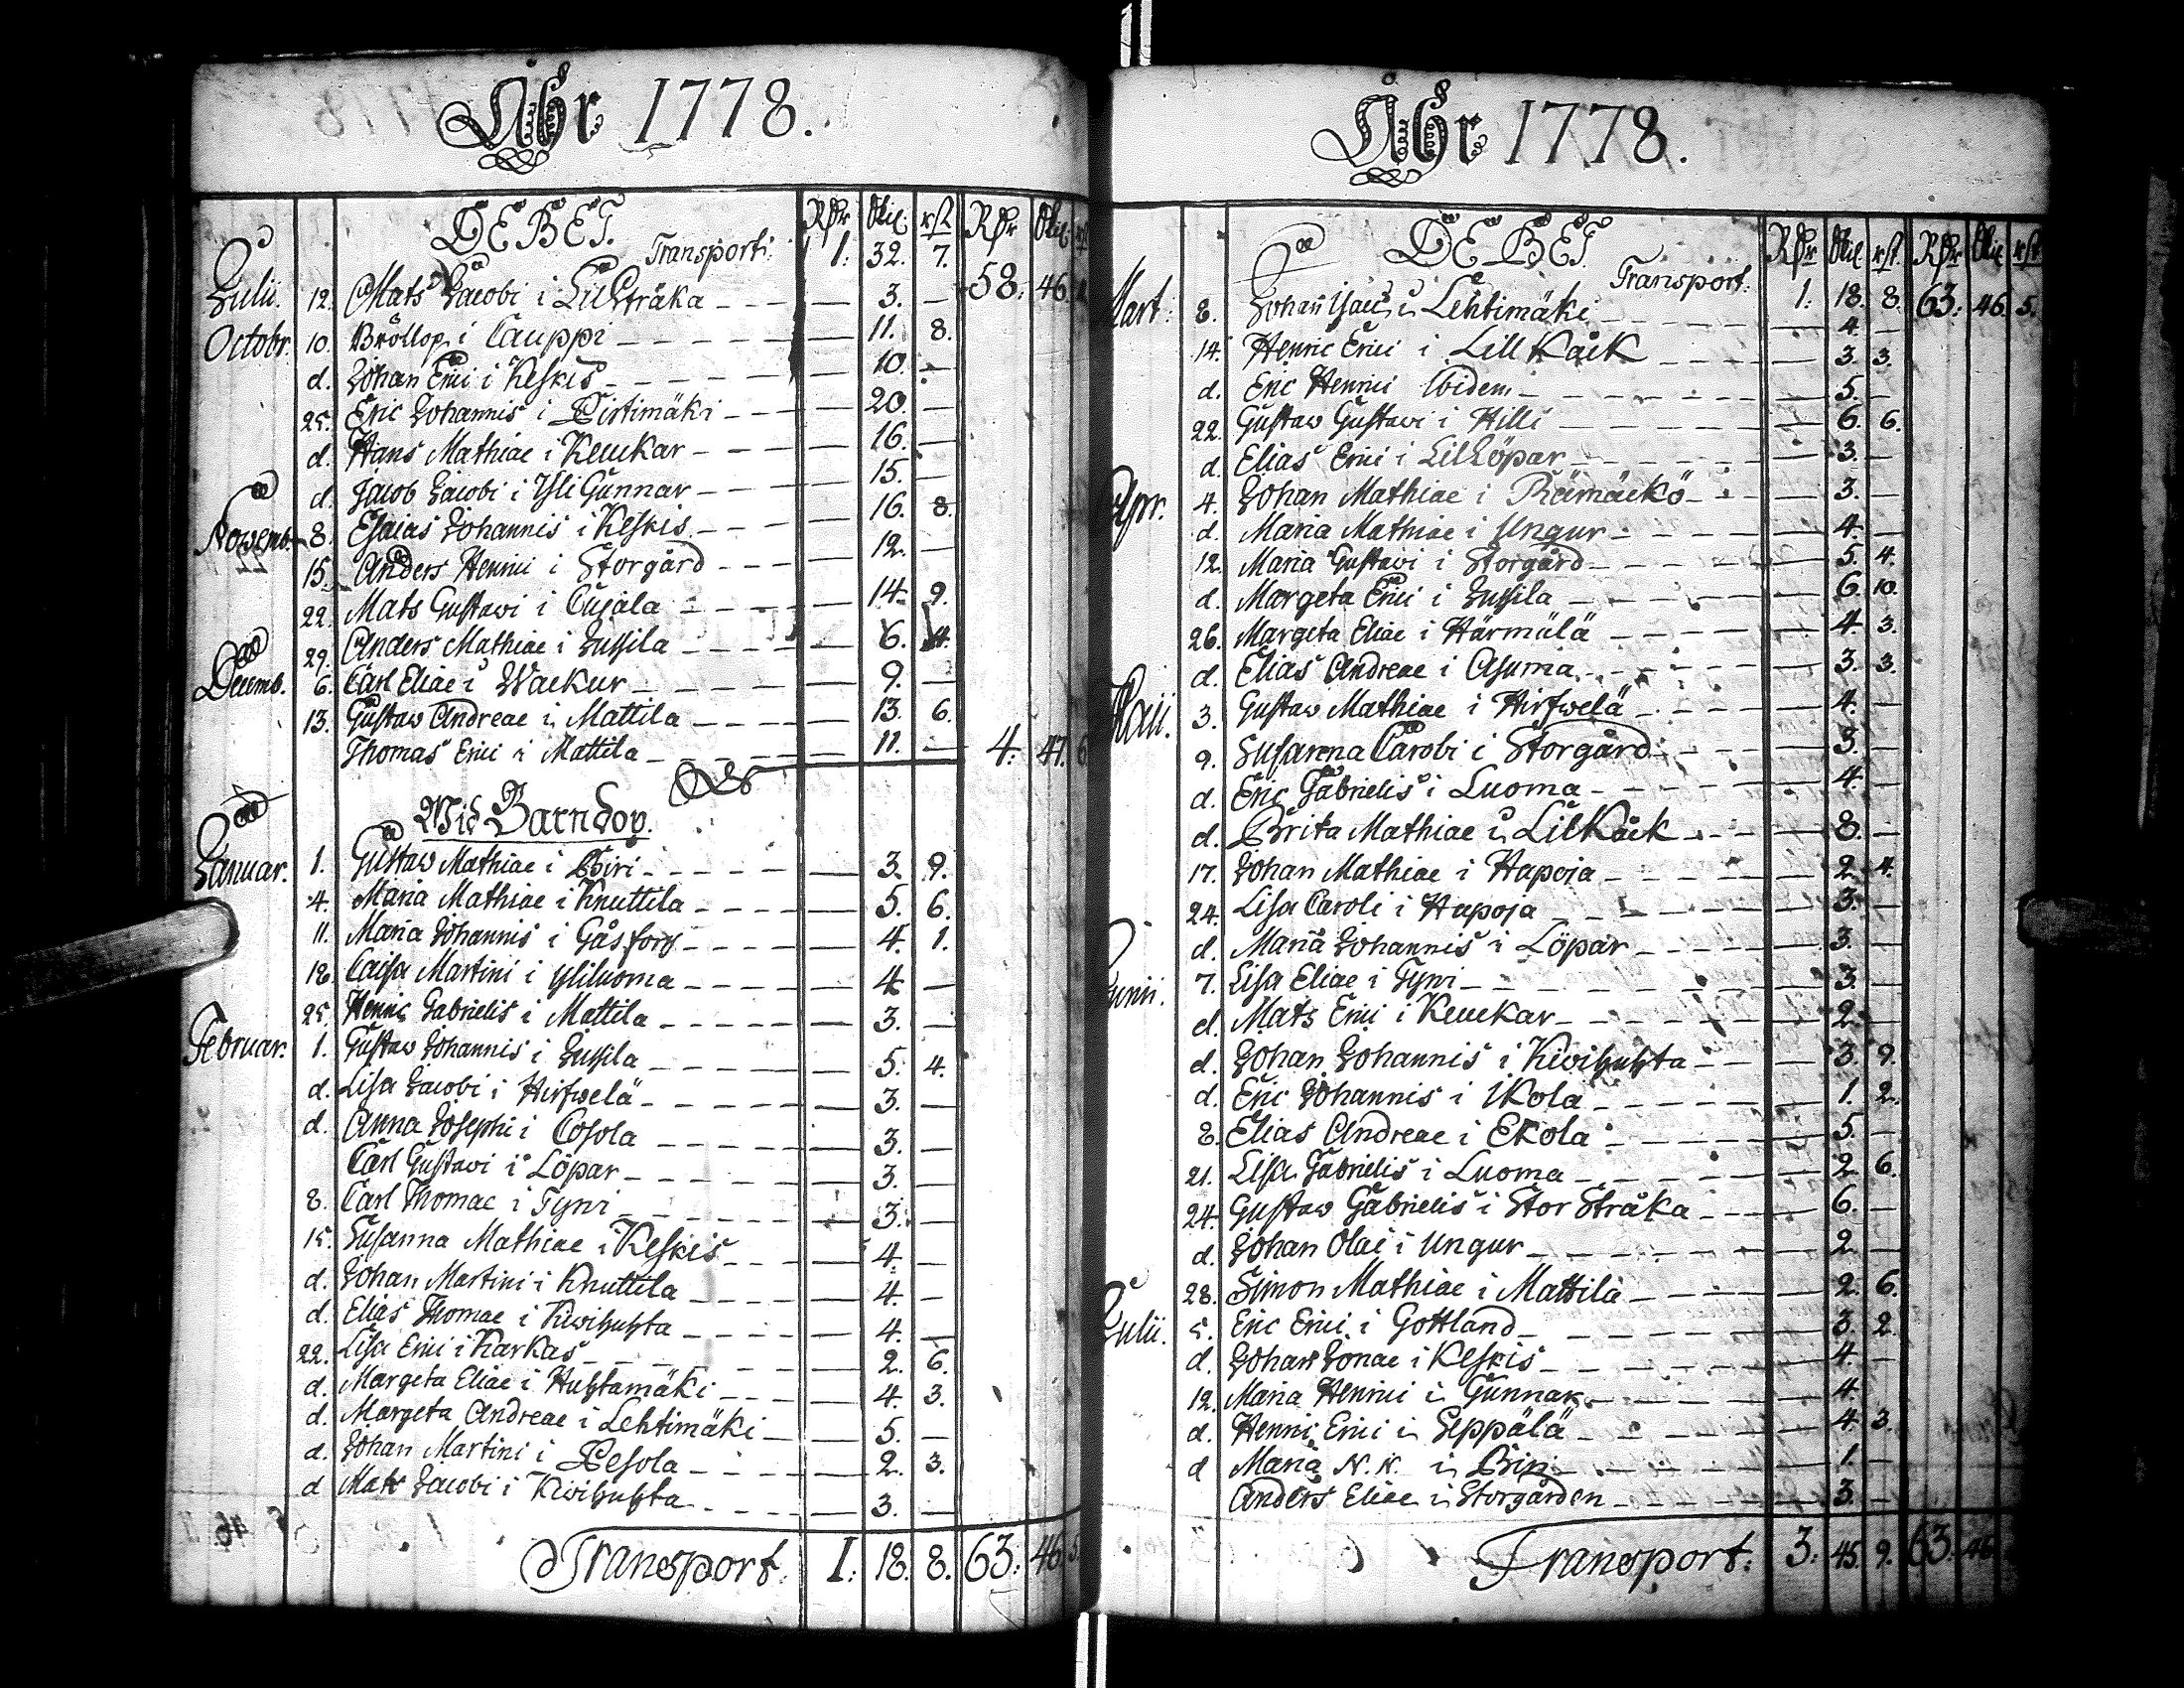 Åhr 1778.
DEBET. Rdr Skil. rst. Rdr Skil. rst
Transport: 1: 32. 7. 58: 46.
Julii. 12. Mats Jacobi i Lillstråka — 3. —
Octobr. 10. Bröllop i Cauppi — 11. 8.
d. Johan Erici i Keskis — 10. —
25. Eric Johannis i Pirtimäki — 20. —
d. Hans Mathiae i Keuckar — 16. —
d. Jacob Jacobi i Yli Gunnar — 15. —
Novemb. 8. Esaias Johannis i Keskis — 16. 8.
15. Anders Henrici i Storgård — 12. —
22. Mats Gustavi i Cujala — 14. 9.
29. Anders Mathiae i Jussila — 6. 4.
Decemb. 6. Carl Eliae i Wackur — 9. —
13. Gustav Andreae i Mattila — 13. 6.
Thomas Erici i Mattila — 11. — 4: 47. 6
Wid Barndop.
Januar. 1. Gustav Mathiae i Piri — 3. 9.
4. Maria Mathiae i Knuttila — 5. 6.
11. Maria Johannis i Gåsborg — 4. 1.
18. Caisa Martini i Yliluoma — 4. —
25. Henric Gabrielis i Mattila — 3. —
Februar. 1. Gustav Johannis i Jussila — 5. 4.
d. Lisa Jacobi i Hirfwelä — 3. —
d. Anna Josephi i Cosola — 3. —
Carl Gustavi i Löpar — 3. —
8. Carl Thomae i Tyni — 3. —
15. Susanna Mathiae i Keskis — 4. —
d. Johan Martini i Knuttila — 4. —
d. Elias Thomae i Kiwihuhta — 4. —
22. Lisa Erici i Karkas — 2. 6.
d. Margeta Eliae i Huhtamäki — 4. 3.
d. Margeta Andreae i Lehtimäki — 5. —
d. Johan Martini i Pesola — 2. 3.
d Mats Jacobi i Kiwihuhta — 3. —
Transport. 1: 18. 8. 63: 46 5.
Åhr 1778.
DEBET. Rdr Skil. rst. Rdr Skil rst
Transport: 1: 18. 8. 63: 46. 5.
Mart: 8. Johan Isaci i Lehtimäki — 4. —
14. Henric Erici i Lill Kåck — 3. 3.
d. Eric Henrici Ibidem — 5. —
22. Gustav Gustavi i Hilli — 6. 6.
d. Elias Erici i Lillöpar — 3. —
Apr. 4. Johan Mathiae i Rämäckö — 3. —
d. Maria Mathiae i Ungur — 4. —
12. Maria Gustavi i Storgård — 5. 4.
d. Margeta Erici i Jussila — 6. 10.
26. Margeta Eliae i Härmälä — 4. 3.
d. Elias Andreae i Asuma — 3. 3.
Maii. 3. Gustav Mathiae i Hirfwelä — 4. —
9. Susanna Caroli i Storgård — 3. —
d. Eric Gabrielis i Luoma — 4. —
d. Brita Mathiae i Lillkåck — 8. —
17. Johan Mathiae i Hapoja — 2. 4.
24. Lisa Caroli i Hapoja — 3. —
d. Maria Johannis i Löpar — 3. —
Junii. 7. Lisa Eliae i Tyni — 3. —
d. Mats Erici i Keuckar — 2. —
d. Johan Johannis i Kiwihuhta — 3. 9.
d. Eric Johannis i Ikola — 1. 2.
8. Elias Andreae i Ekola — 5. —
21. Lisa Gabrielis i Luoma — 2. 6.
24. Gustav Gabrielis i Stor Stråka — 6. —
d. Johan Olai i Ungur — 2. —
28. Simon Mathiae i Mattila — 2. 6.
Julii. 5. Eric Erici i Gottland — 3. 2.
d. Johan Jonae i Keskis — 4. —
12. Maria Henrici i Gunnar — 4. —
d. Henric Erici i Seppälä — 4. 3.
d Maria N. N. i Piri — 1. —
Anders Eliae i Storgården — 3. —
Transport: 3: 45. 9. 63: 46